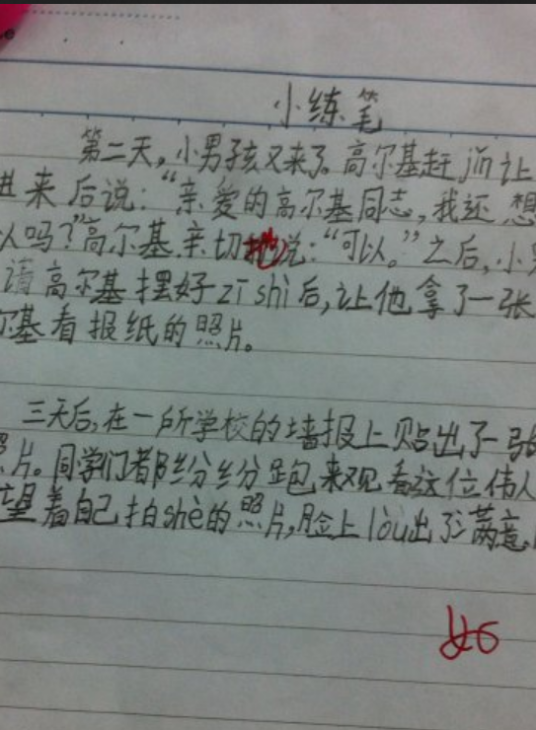 小练笔
第二天，小男孩又来了。高尔基赶jǐn让
进来后说：“亲爱的高尔基同志，我还想
以吗？”高尔基亲切地说：“可以。”之后，小男
请高尔基摆好zī shì后，让他拿了一张
尔基看报纸的照片。
三天后，在一所学校的墙报上贴出了一张
照片。同学们都纷纷跑来观看这位伟人
望着自己拍shè的照片，脸上lòu出了满意
好